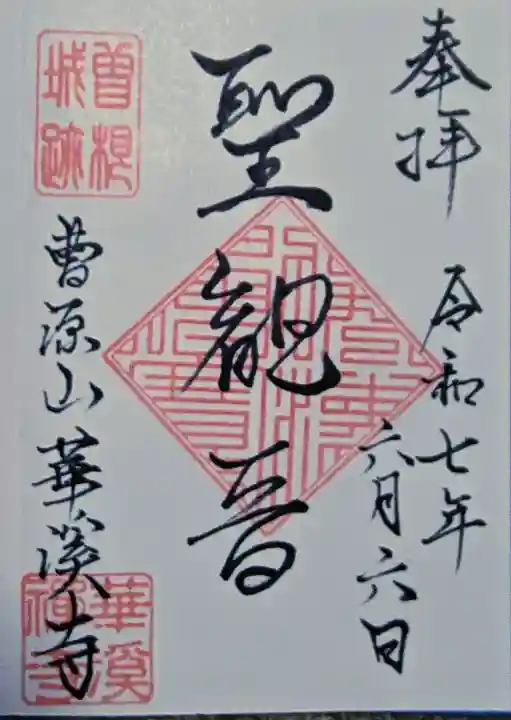 奉拝
令和七年
六月六日
聖観音
曽根
城跡
曹源山 華溪寺
華溪
禅寺